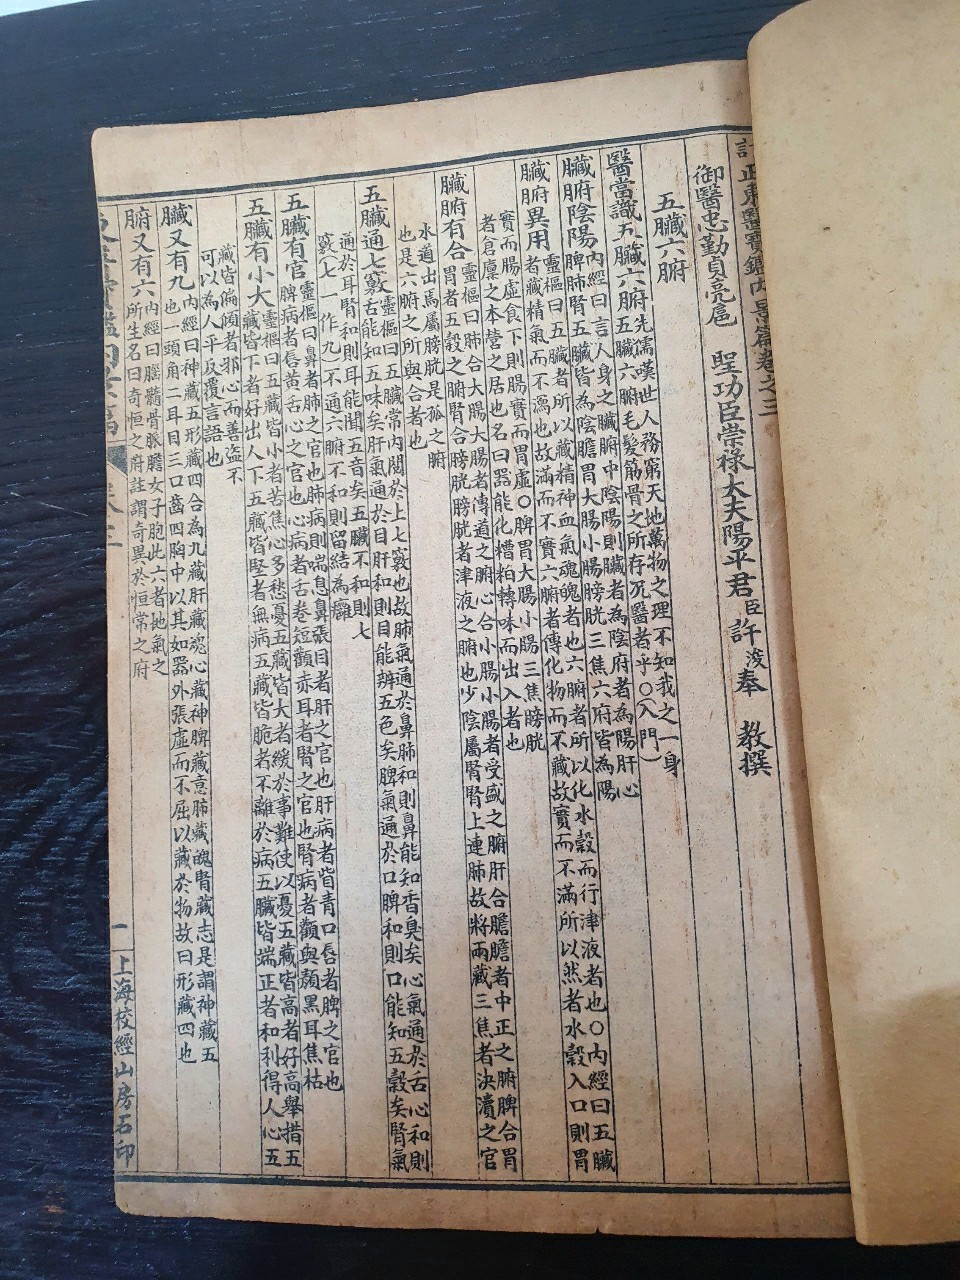 訂正東醫寶鑑內景篇卷之三
御醫忠勤貞亮扈 聖功臣崇祿大夫陽平君臣許浚奉 教撰
五臟六腑
醫當識五臟六腑先儒嘆世人務窮天地萬物之理不知我之一身
五臟六腑毛髮筋骨之所存况醫者乎〇(入門)
臟腑陰陽內經曰言人身之臟腑中陰陽則臟者為陰府者為陽肝心
脾肺腎五臟皆為陰膽胃大腸小腸膀胱三焦六府皆為陽
臟腑異用靈樞曰五臟者所以藏精神血氣魂魄者也六腑者所以化水穀而行津液者也〇內經曰五臟
者藏精氣而不瀉也故滿而不實六腑者傳化物而不藏故實而不滿所以然者水穀入口則胃
實而腸虛食下則腸實而胃虛〇脾胃大腸小腸三焦膀胱
者倉廩之本營之居也名曰器能化糟粕轉味而出入者也
臟腑有合靈樞曰肺合大腸大腸者傳道之腑心合小腸小腸者受盛之腑肝合膽膽者中正之腑脾合胃
胃者五穀之腑腎合膀胱膀胱者津液之腑也少陰屬腎腎上連肺故將兩藏三焦者決瀆之官
水道出焉屬膀胱是孤之腑
也是六腑之所與合者也
五臟通七竅靈樞曰五臟常內閱於上七竅也故肺氣通於鼻肺和則鼻能知香臭矣心氣通於舌心和則
舌能知五味矣肝氣通於目肝和則目能辨五色矣脾氣通於口脾和則口能知五穀矣腎氣
通於耳腎和則耳能聞五音矣五臟不和則七
竅(七一作九)不通六腑不和則留結為癰
五臟有官靈樞曰鼻者肺之官也肺病則喘息鼻張目者肝之官也肝病者眥青口唇者脾之官也
脾病者唇黃舌心之官也心病者舌卷短顴赤耳者腎之官也腎病者顴與顏黑耳焦枯
五臟有小大靈樞曰五藏皆小者苦焦心多愁憂五藏皆大者緩於事難使以憂五藏皆高者好高舉措五
藏皆下者好出人下五臟皆堅者無病五藏皆脆者不離於病五臟皆端正者和利得人心五
藏皆偏傾者邪心而善盜不
可以為人平反覆言語也
臟又有九內經曰神藏五形藏四合為九藏肝藏魂心藏神脾藏意肺藏魄腎藏志是謂神藏五
也一頭角二耳目三口齒四胸中以其如器外張虛而不屈以藏於物故曰形藏四也
腑又有六內經曰腦髓骨脈膽女子胞此六者地氣之
所生名曰奇恒之府註謂奇異於恒常之府
東醫寶鑑內景篇 卷三 一 上海校經山房石印